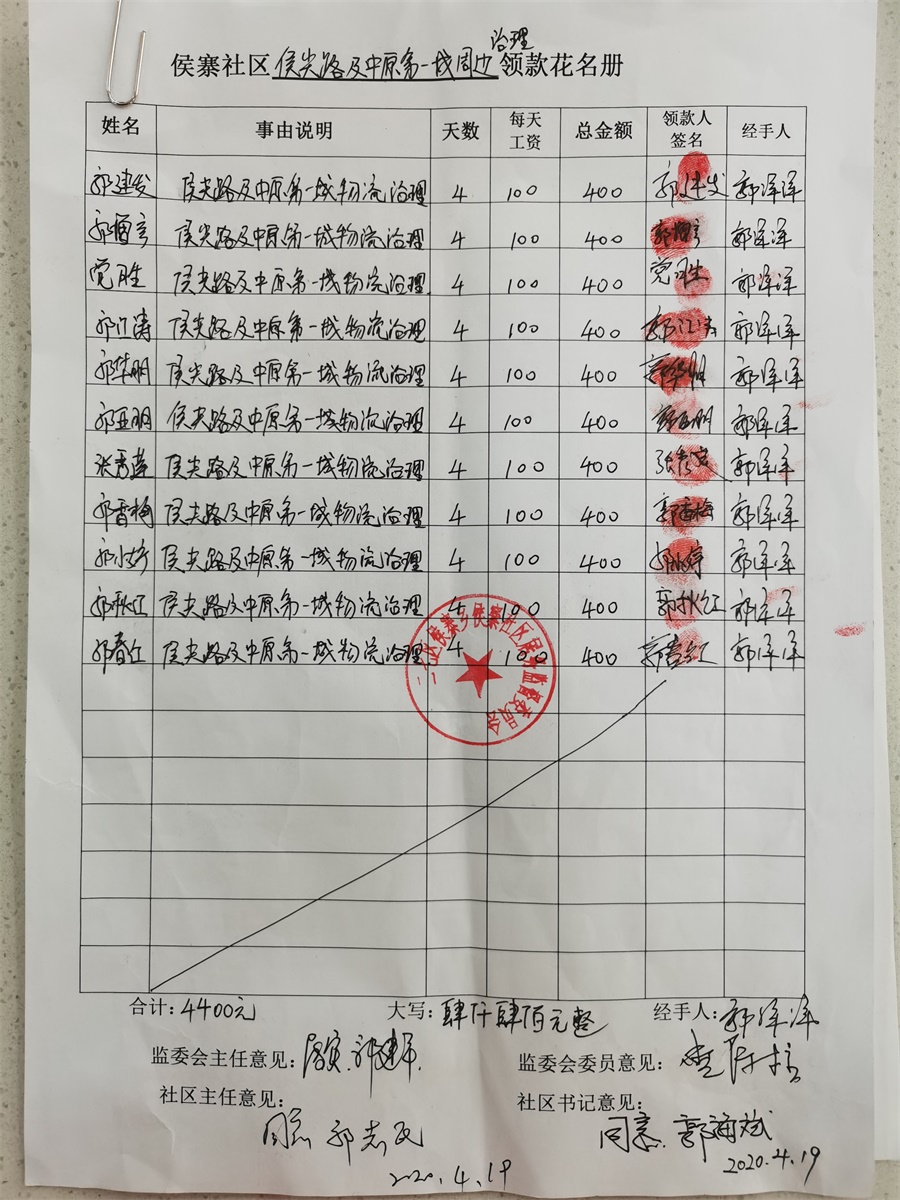 治理
侯寨社区侯尖路及中原第一城周边领款花名册
姓名 事由说明 天数 每天工资 总金额 领款人签名 经手人
郭建发 侯尖路及中原第一城物流治理 4 100 400 郭建发 郭泽泽
郭 侯尖路及中原第一城物流治理 4 100 400 郭 郭泽泽
党胜 侯尖路及中原第一城物流治理 4 100 400 党胜 郭泽泽
郭江涛 侯尖路及中原第一城物流治理 4 100 400 郭江涛 郭泽泽
郭华明 侯尖路及中原第一城物流治理 4 100 400 郭华明 郭泽泽
郭亚朋 侯尖路及中原第一城物流治理 4 100 400 郭亚朋 郭泽泽
张秀莲 侯尖路及中原第一城物流治理 4 100 400 张秀 郭泽泽
郭香梅 侯尖路及中原第一城物流治理 4 100 400 郭香梅 郭泽泽
郭小婷 侯尖路及中原第一城物流治理 4 100 400 郭小婷 郭泽泽
郭秋红 侯尖路及中原第一城物流治理 4 100 400 郭秋红 郭泽泽
郭春红 侯尖路及中原第一城物流治理 4 100 400 郭春红 郭泽泽
二七区侯寨乡侯寨社区居务监督委员会
合计：4400元 大写：肆仟肆佰元整 经手人：郭泽泽
监委会主任意见：属实 郭建军 监委会委员意见：
社区主任意见： 社区书记意见：
同意 郭志民 同意 郭海斌
2020.4.19 2020.4.19